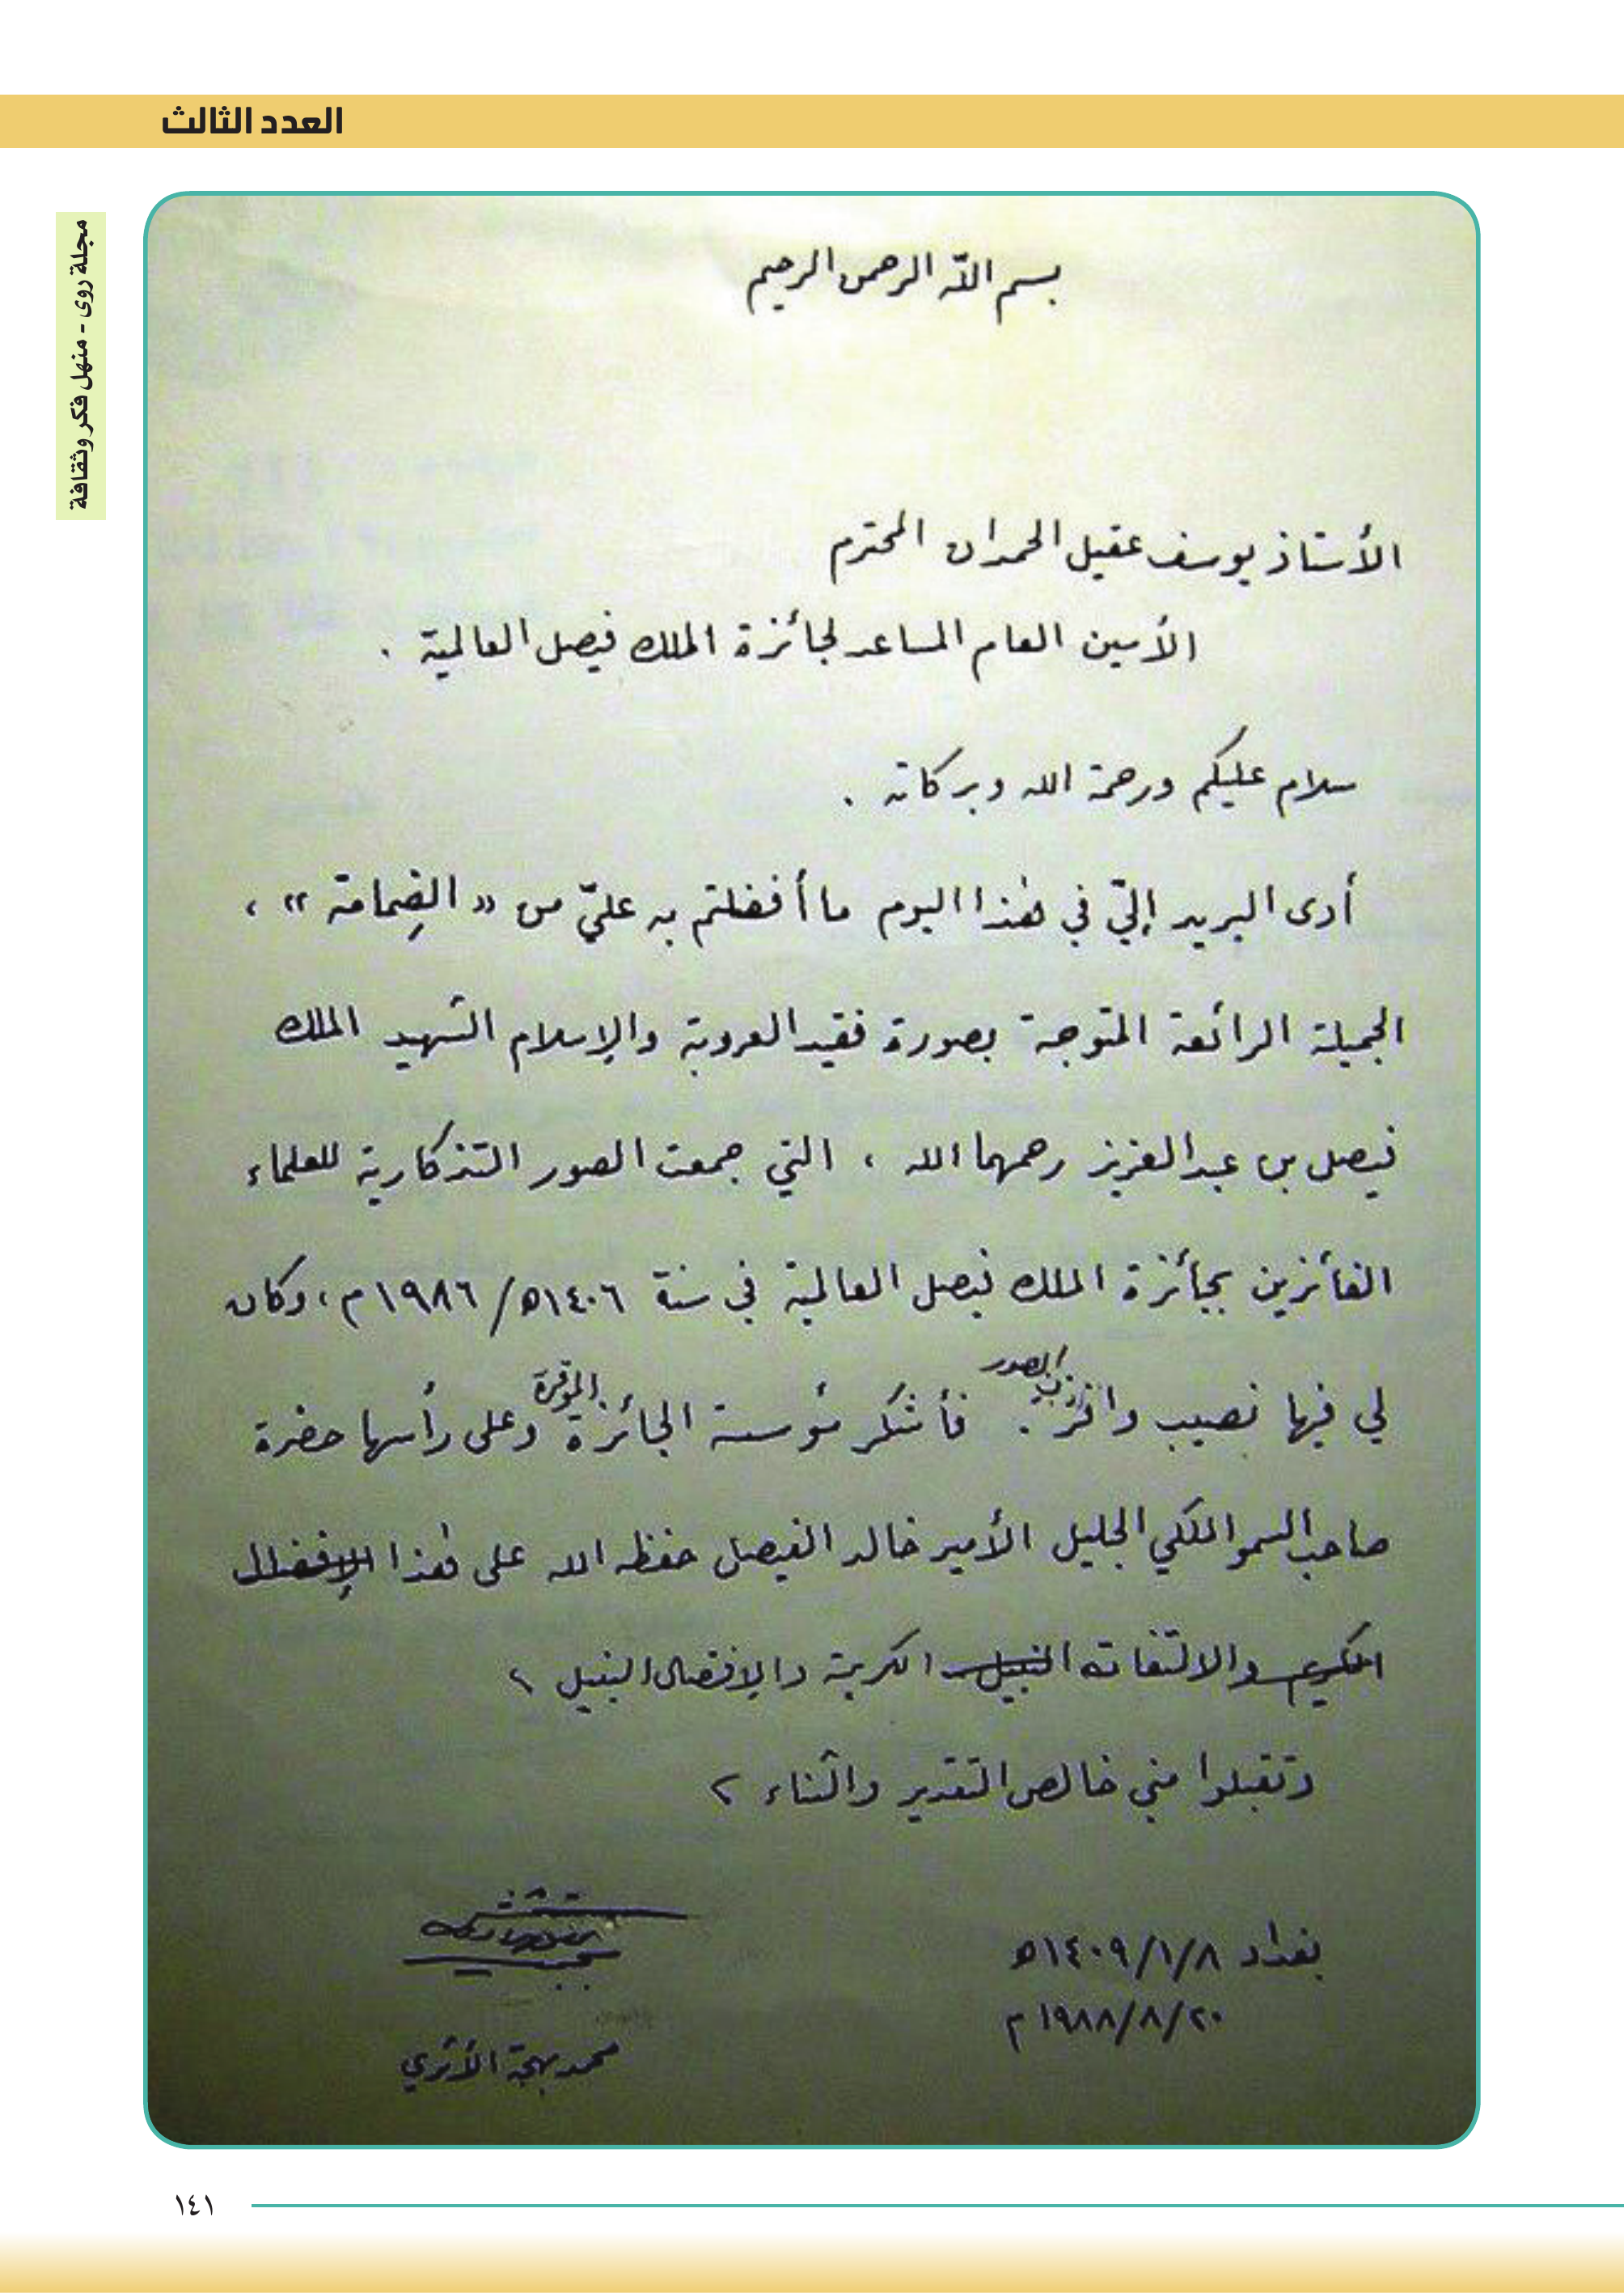 العدد الثالث
مجلة روى - منهل فكر وثقافة
بسم الله الرحمن الرحيم
الأستاذ يوسف عقيل الحمدان المحترم
الأمين العام المساعد لجائزة الملك فيصل العالمية .
سلام عليكم ورحمة الله وبركاته .
أدى البريد إليّ في هٰذا اليوم ما أفضلتم به عليّ من « الضِمامة » ،
الجميلة الرائعة المتوجة بصورة فقيد العروبة والإسلام الشهيد الملك
فيصل بن عبد العزيز رحمهما الله ، التي جمعت الصور التذكارية للعلماء
الفائزين بجائزة الملك فيصل العالمية في سنة ١٤٠٦ه/ ١٩٨٦م ، وكان
لي فيها نصيب وافر . فأشكر مؤسسة الجائزة الموقرة وعلى رأسها حضرة
صاحب السمو الملكي الجليل الأمير خالد الفيصل حفظه الله على هٰذا الإفضال
الكريم والالتفاته النبيل الكريمة والإفضال النبيل
وتقبلوا مني خالص التقدير والثناء
بغداد ١٤٠٩/١/٨ه
١٩٨٨/٨/٢٠ م
محمد بهجة الأثري
١٤١